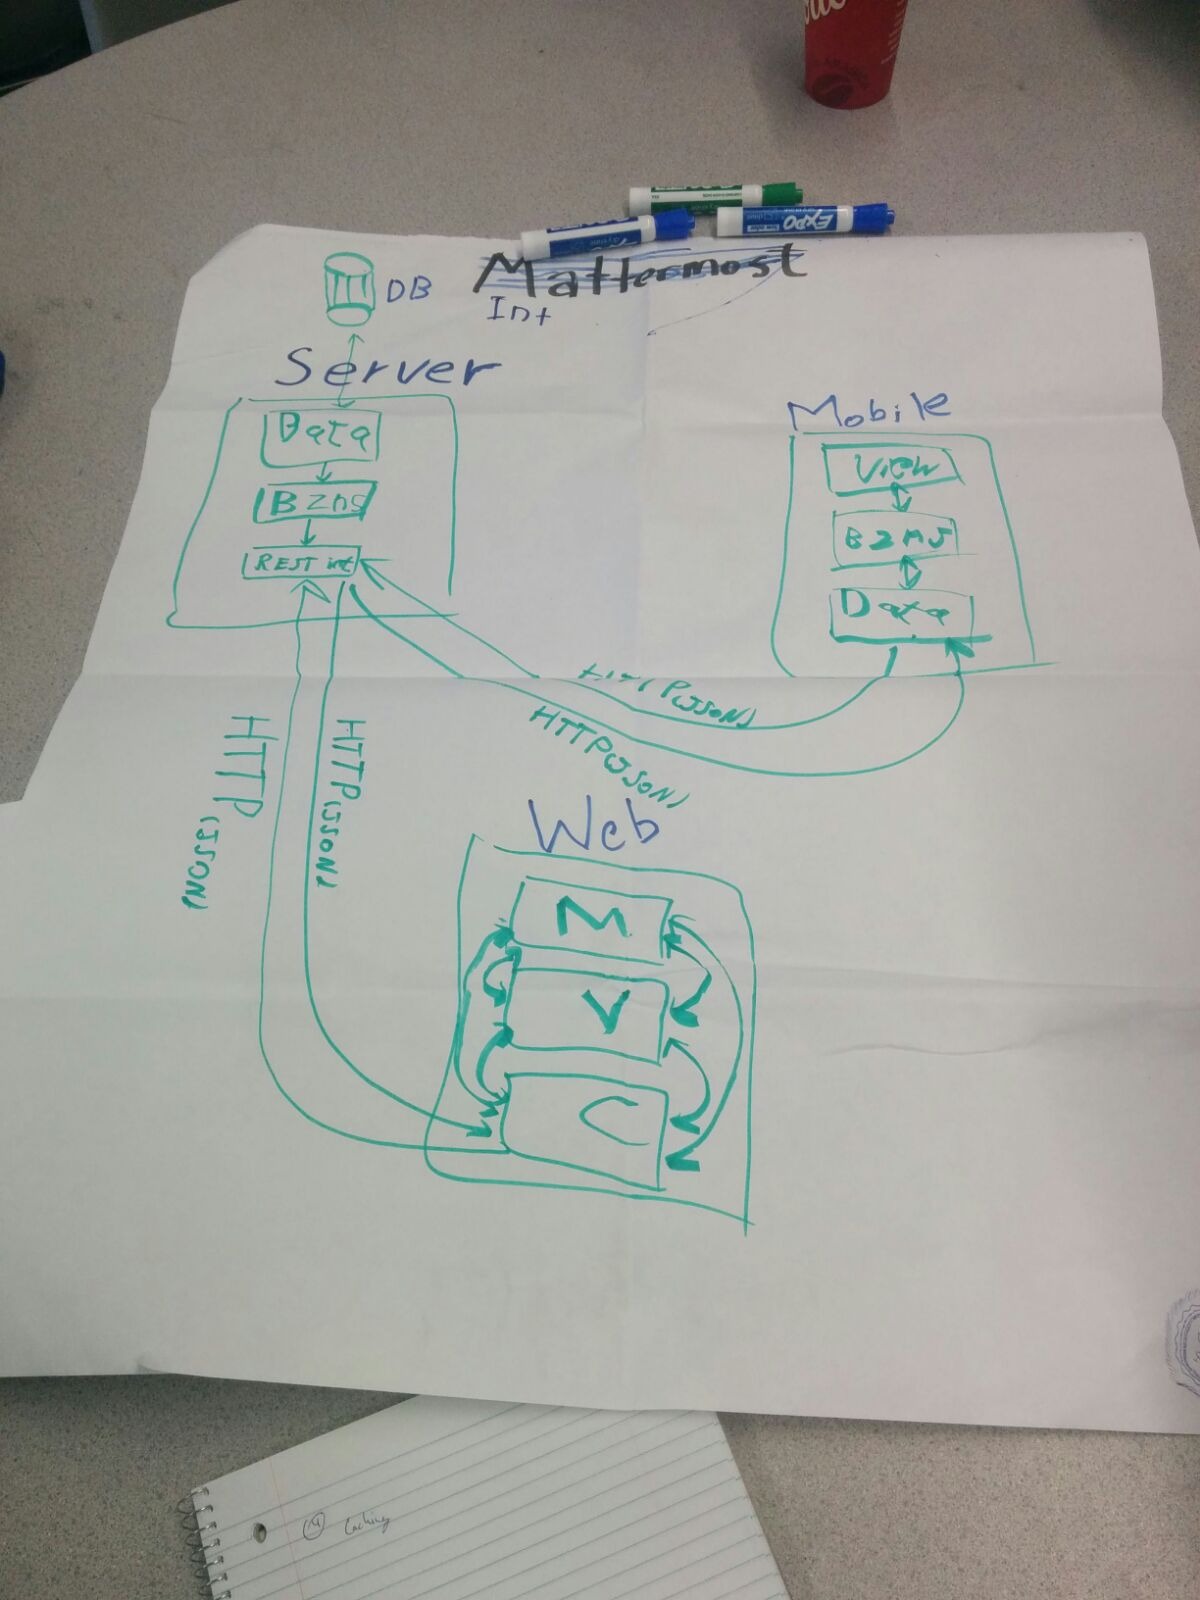 EXPO
DB
Mattermost
Int
Server
Data
Bzns
REST int
Mobile
View
Bzns
Data
HTTP(JSON)
HTTP(JSON)
HTTP (JSON)
HTTP (JSON)
Web
M
V
C
Caching